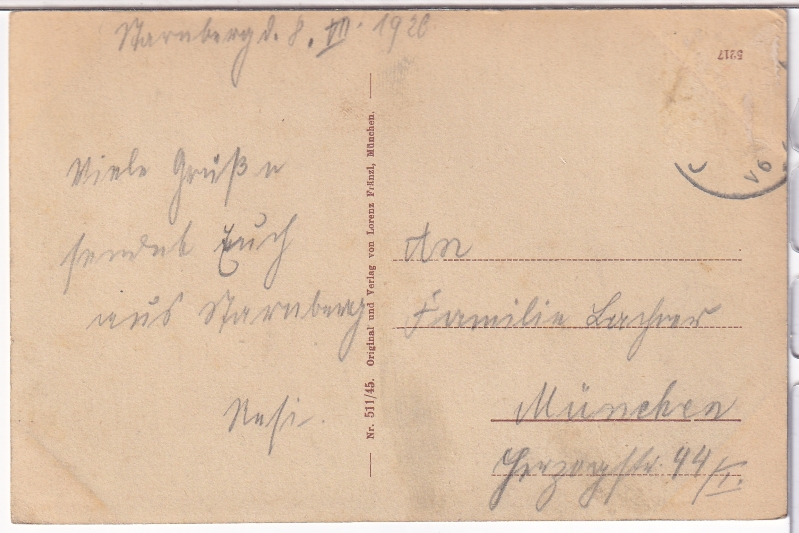 Starnberg d. 8. VII. 1920
5217
Viele Grüße
sendet Euch
aus Starnberg
Resi.
Nr. 511/45. Original und Verlag von Lorenz Fränzl, München.
An
Familie
München
Herzogstr. 44/I.